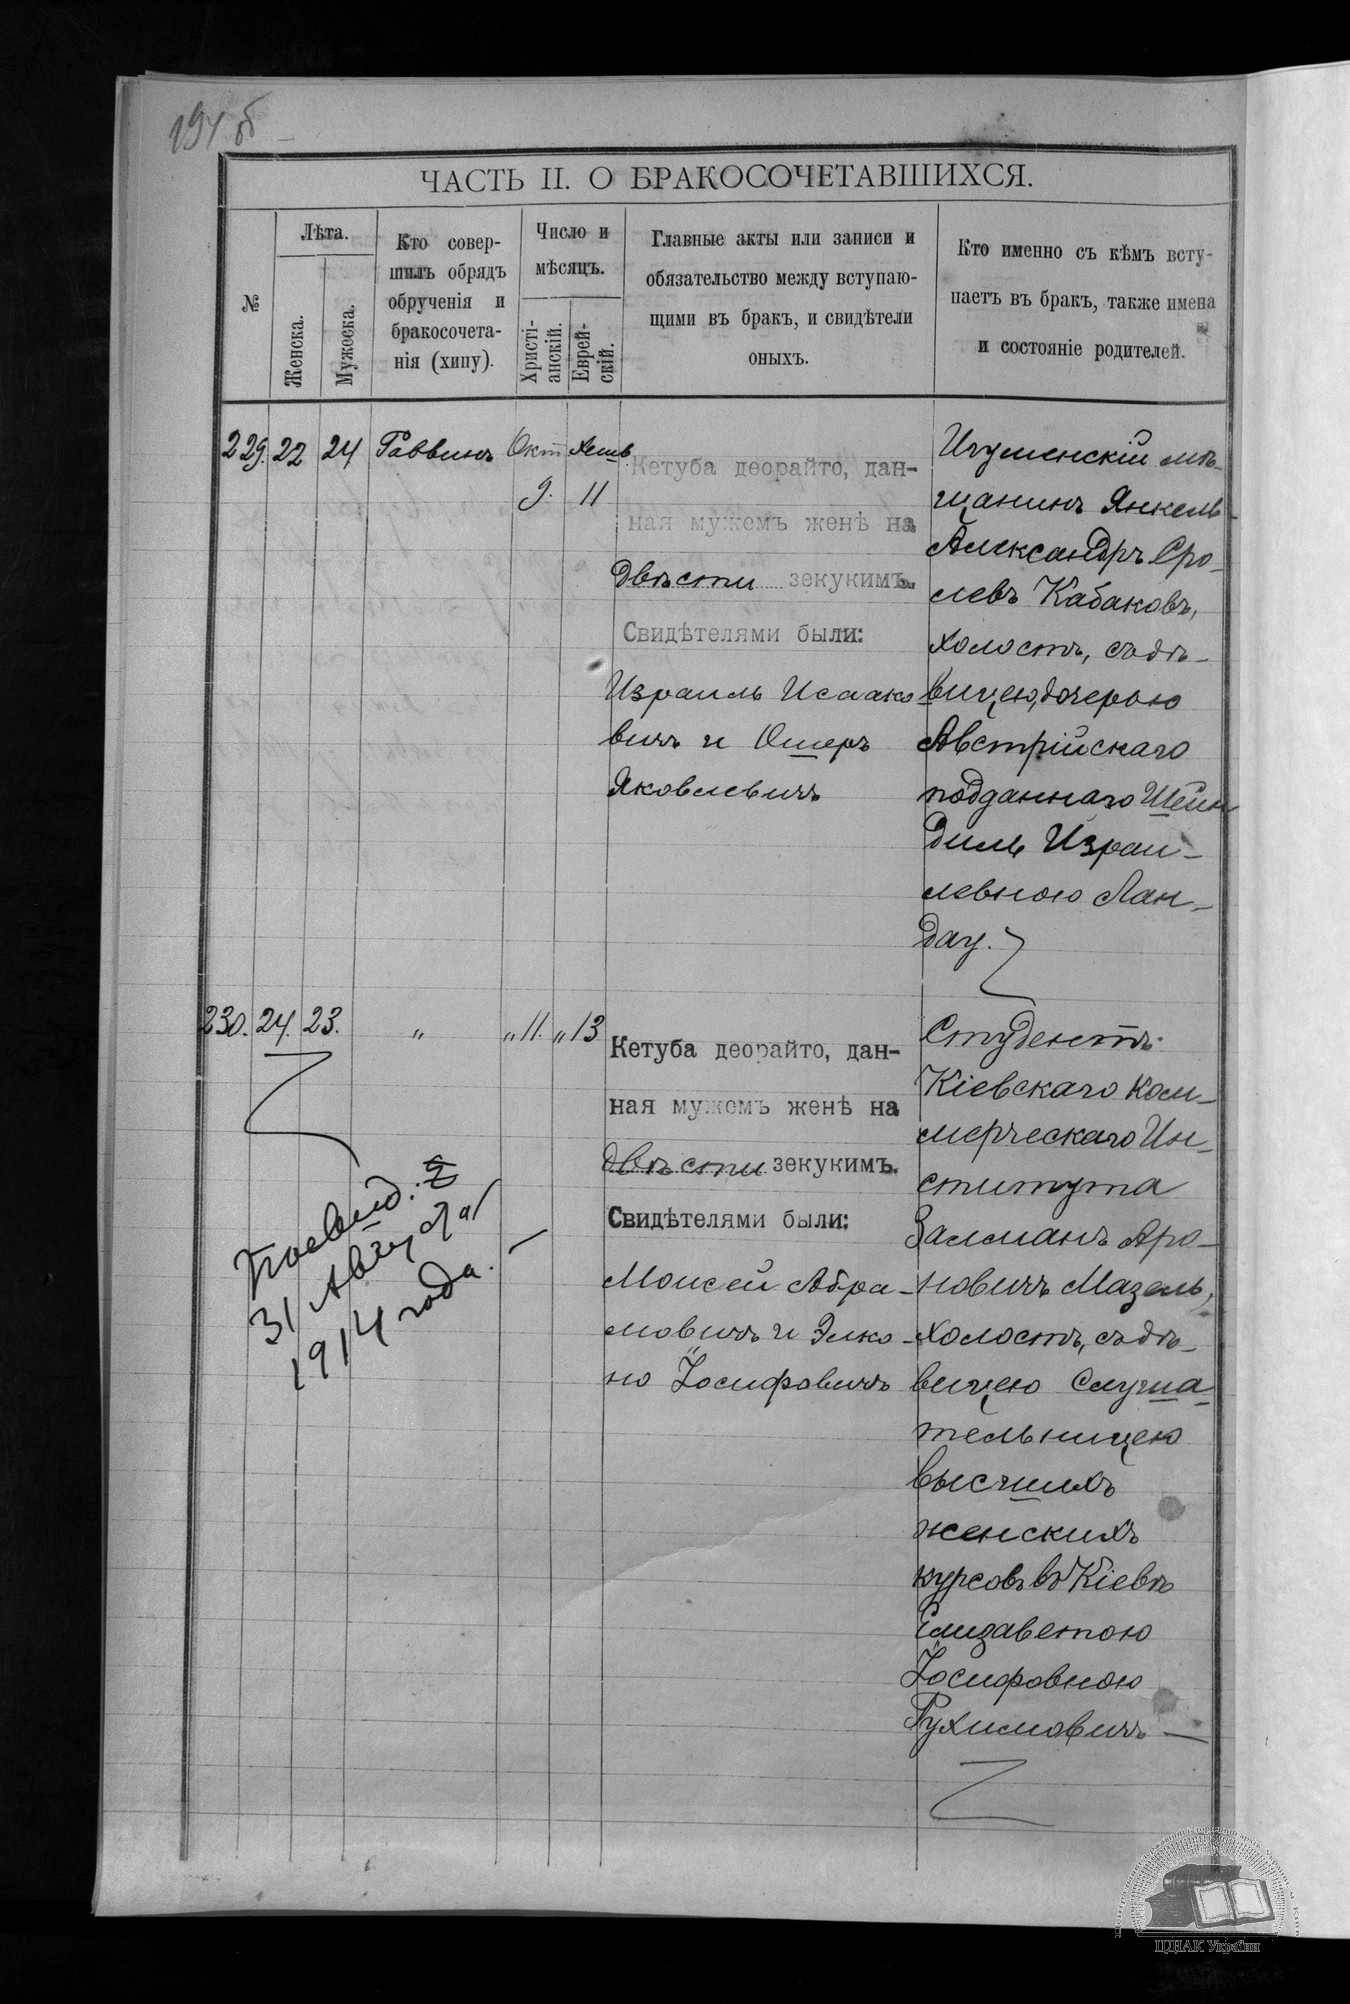 194 б
ЧАСТЬ II. О БРАКОСОЧЕТАВШИХСЯ.
№
Лѣта.
Женска.
Мужеска.
Кто совер-
шилъ обрядъ
обрученія и
бракосочета-
нія (хипу).
Число и
мѣсяцъ.
Христі-
анскій.
Еврей-
скій.
Главные акты или записи и
обязательство между вступаю-
щими въ бракъ, и свидѣтели
оныхъ.
Кто именно съ кѣмъ всту-
паетъ въ бракъ, также имена
и состояніе родителей.
229. 22 24 Раввинъ Окт Хешв
9. 11
Кетуба деорайто, дан-
ная мужемъ женѣ на
двѣсти зекукимъ.
Свидѣтелями были:
Израиль Исаако
вичъ и Ошеръ
Яковлевичъ
Игуменскій мѣ-
щанинъ Янкель-
Александръ Сро-
левъ Кабаковъ,
холостъ, съ дѣ-
вицею, дочерью
Австрійскаго
подданнаго Шейн
диль Израи-
левною Лан-
дау.
230. 24. 23. " " 11. " 13
Кетуба деорайто, дан-
ная мужемъ женѣ на
двѣсти зекукимъ.
Свидѣтелями были:
Моисей Абра-
мовичъ и Элко-
но Іосифовичъ
Студентъ
Кіевскаго Ком-
мерческаго Ин-
ститута
Залманъ Аро-
новичъ Мазель,
холостъ, съ дѣ-
вицею Слуша-
тельницею
высшихъ
женскихъ
курсовъ въ Кіевѣ
Елизаветою
Іосифовною
Рухимовичъ —
31 Августа
1914 года. —
ЦДІАК України